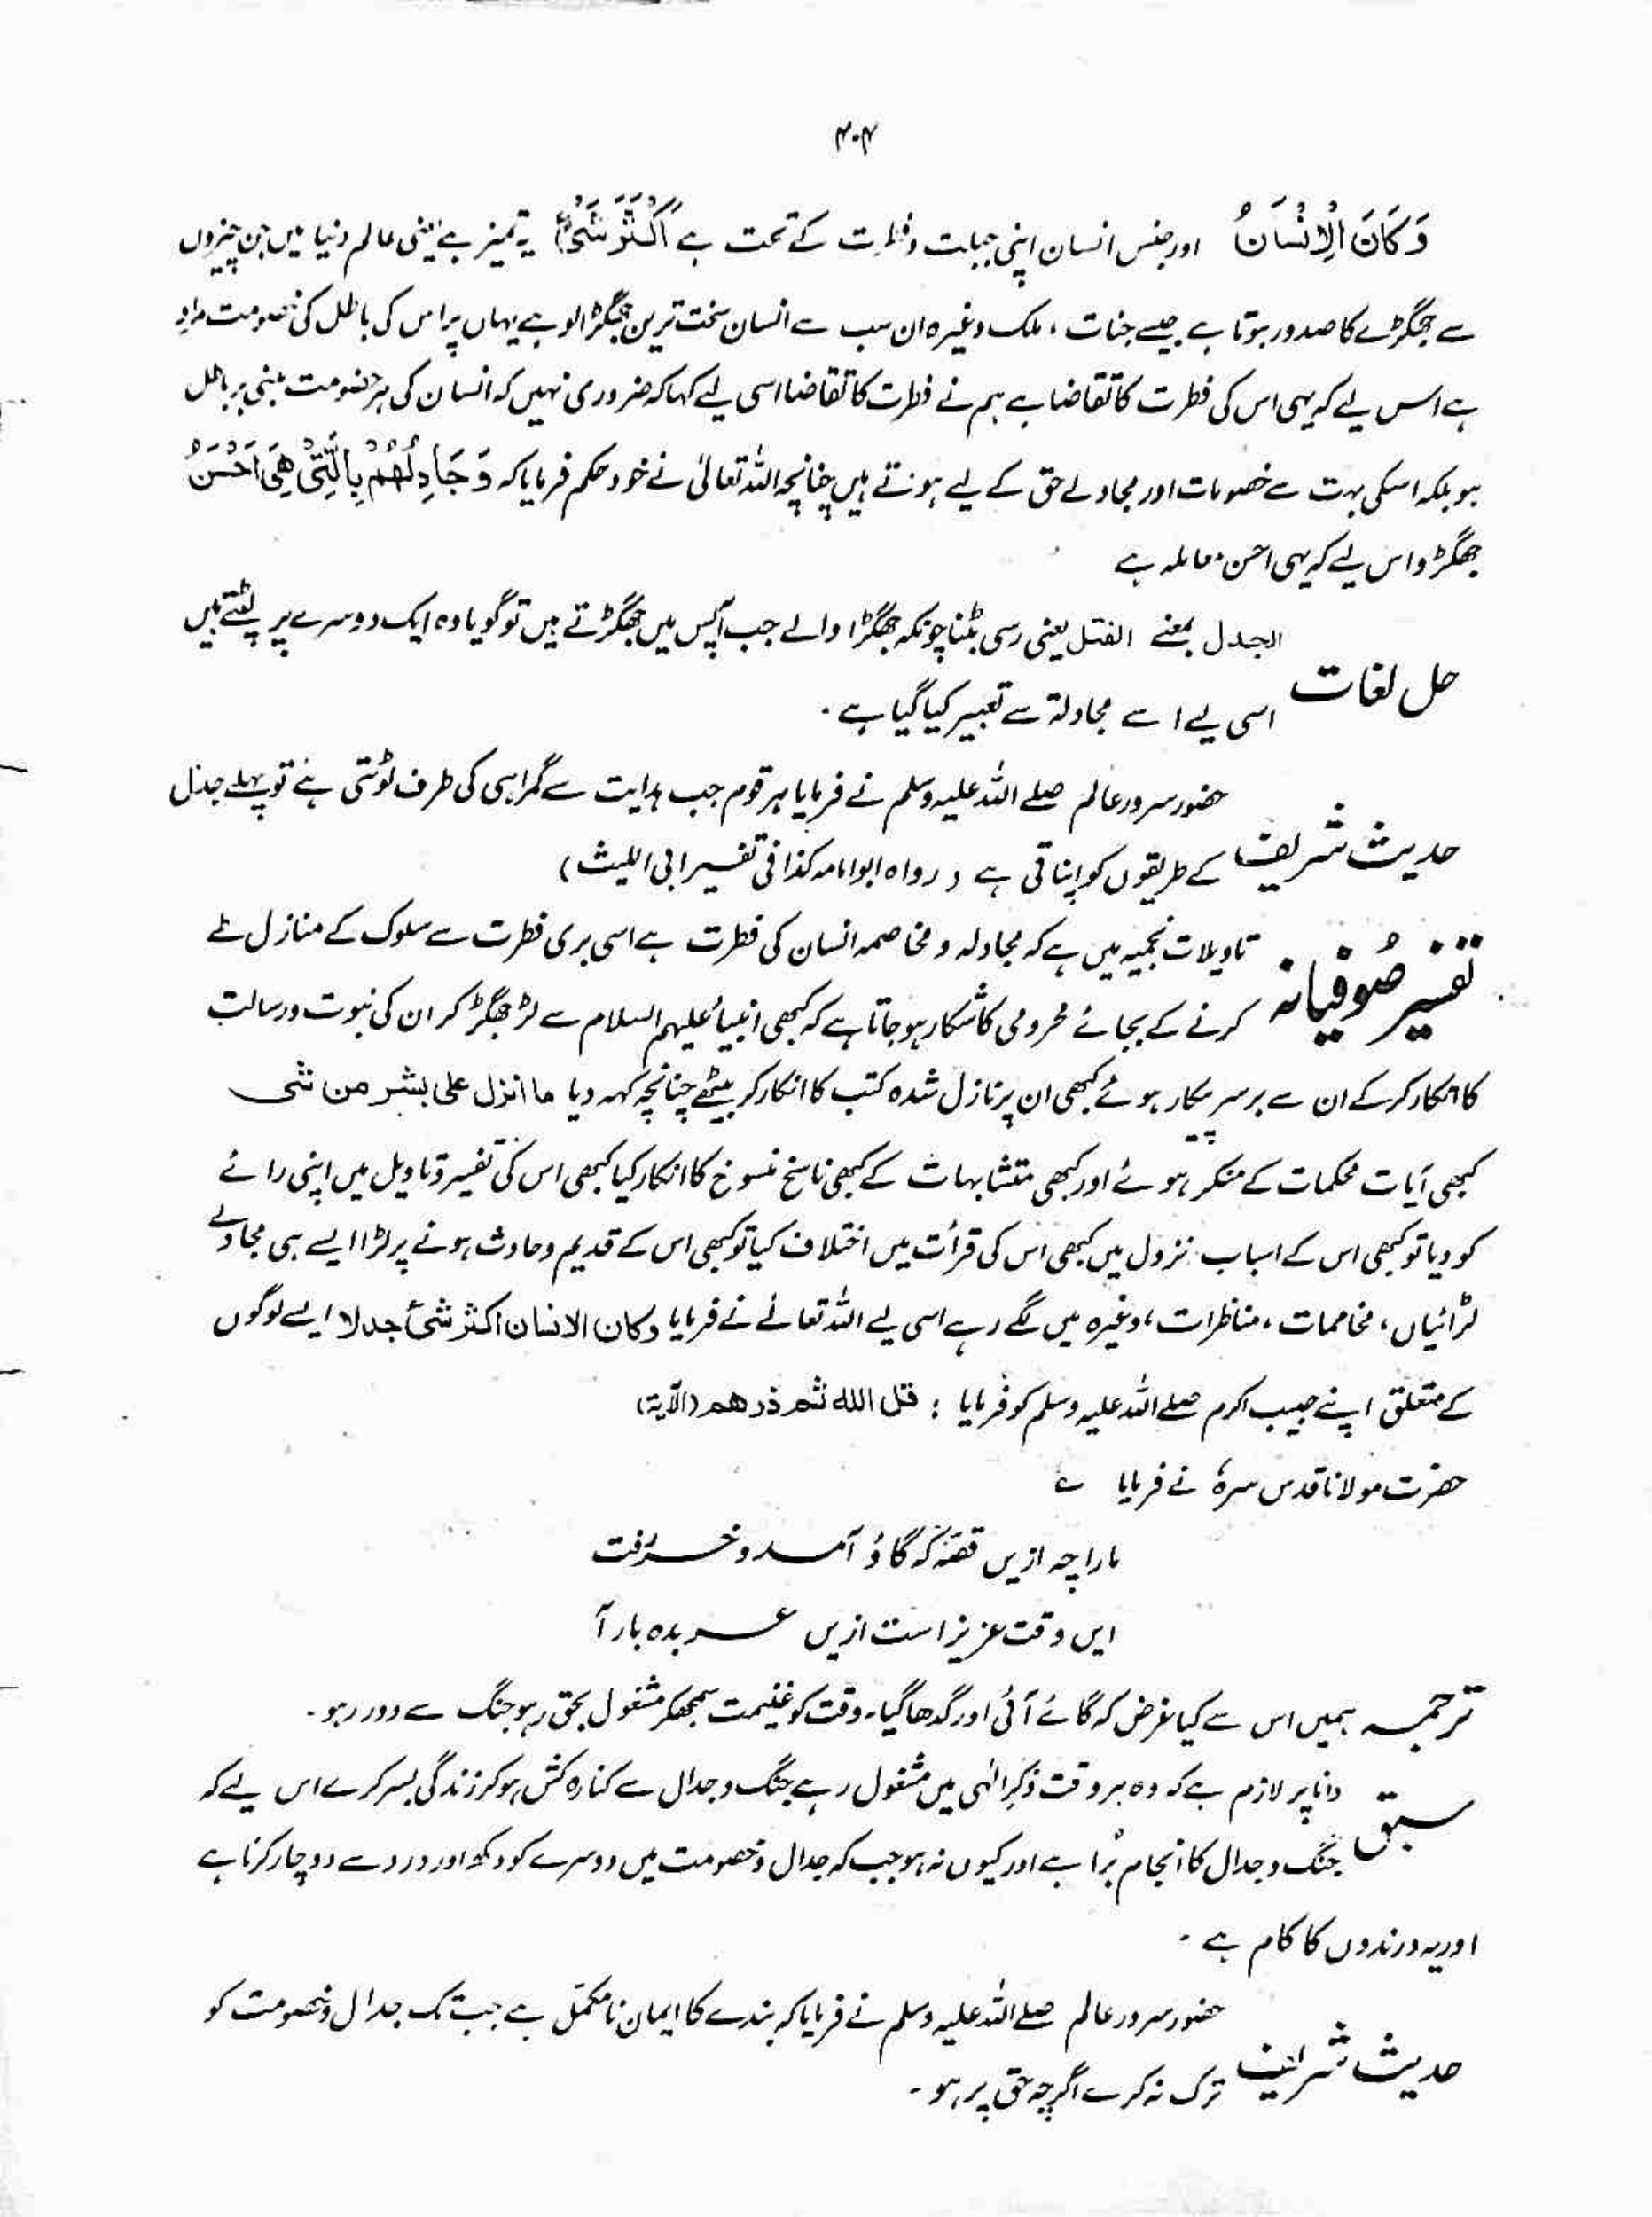 ۴۰۴
وَكَانَ الْاِنْسَانُ اور جنس انسان اپنی جبلت وفطرت کے تحت ہے اَكْثَرَ شَیْءٍ یہ تمیز ہے یعنی عالم دنیا میں جن چیزوں
سے جھگڑے کا صدور ہوتا ہے جیسے جنات ، ملک وغیرہ ان سب سے انسان سخت ترین جھگڑالو ہے یہاں پر اس کی باطل کی خصومت مراد
ہے اس لیے کہ یہی اس کی فطرت کا تقاضا ہے ہم نے فطرت کا تقاضا اسی لیے کہا کہ ضروری نہیں کہ انسان کی ہر خصومت مبنی بر باطل
ہو بلکہ اسکی بہت سے خصومات اور مجادلے حق کے لیے ہوتے ہیں چنانچہ اللہ تعالیٰ نے خود حکم فرمایا کہ وَجَادِلْهُمْ بِالَّتِیْ هِیَ اَحْسَنُ
جھگڑو اس لیے کہ یہی احسن معاملہ ہے
الجدل بمعنے الفتل یعنی رسی بٹنا چونکہ جھگڑا والے جب آپس میں جھگڑتے ہیں تو گویا وہ ایک دوسرے پر پلٹتے ہیں
حل لغات
اسی لیے اسے مجادلۃ سے تعبیر کیا گیا ہے ۔
حضور سرور عالم صلے اللہ علیہ وسلم نے فرمایا ہر قوم جب ہدایت سے گمراہی کی طرف لوٹتی ہے تو پہلے جدل
حدیث شریف
کے طریقوں کو اپناتی ہے ( رواہ ابوامامہ کذا فی تفسیر ابی اللیث )
تاویلات نجمیہ میں ہے کہ مجادلہ و مخاصمہ انسان کی فطرت ہے اسی بری فطرت سے سلوک کے منازل طے
تفسیر صُوفیانہ
کرنے کے بجائے محرومی کا شکار ہو جاتا ہے کہ کبھی انبیاء علیہم السلام سے لڑ جھگڑ کر ان کی نبوت ورسالت
کا انکار کر کے ان سے برسر پیکار ہوئے کبھی ان پر نازل شدہ کتب کا انکار کر بیٹھے چنانچہ کہہ دیا ما انزل علی بشر من شی
کبھی آیات محکمات کے منکر ہوئے اور کبھی متشابہات کے کبھی ناسخ منسوخ کا انکار کیا کبھی اس کی تفسیر وتاویل میں اپنی رائے
کو دیا تو کبھی اس کے اسباب نزول میں کبھی اس کی قرأت میں اختلاف کیا تو کبھی اس کے قدیم وحادث ہونے پر لڑا ایسے ہی مجادلے
لڑائیاں ، مخاصمات ، مناظرات ، وغیرہ میں لگے رہے اسی لیے اللہ تعالےٰ نے فرمایا وکان الانسان اکثر شئ جدلا ایسے لوگوں
کے متعلق اپنے حبیب اکرم صلے اللہ علیہ وسلم کو فرمایا : قل الله ثم ذرهم (الآیۃ)
حضرت مولانا قدس سرہٗ نے فرمایا ے
مارا چہ ازیں قصہ کہ گاؤ آمد و خر رفت
ایں وقت عزیز است ازیں عربدہ باز آ
ترجمہ ہمیں اس سے کیا غرض کہ گائے آئی اور گدھا گیا ۔ وقت کو غنیمت سمجھ کر مشغول بحق رہو جنگ سے دور رہو ۔
دانا پر لازم ہے کہ وہ ہر وقت ذکرِ الٰہی میں مشغول رہے جنگ و جدال سے کنارہ کش ہو کر زندگی بسر کرے اس لیے کہ
سبق
جنگ و جدال کا انجام بُرا ہے اور کیوں نہ ہو جب کہ جدال وخصومت میں دوسرے کو دکھ اور درد سے دوچار کرنا ہے
اور یہ درندوں کا کام ہے ۔
حضور سرور عالم صلے اللہ علیہ وسلم نے فرمایا کہ بندے کا ایمان نامکمّل ہے جب تک جدال وخصومت کو
حدیث شریف
ترک نہ کرے اگرچہ حق پر ہو ۔